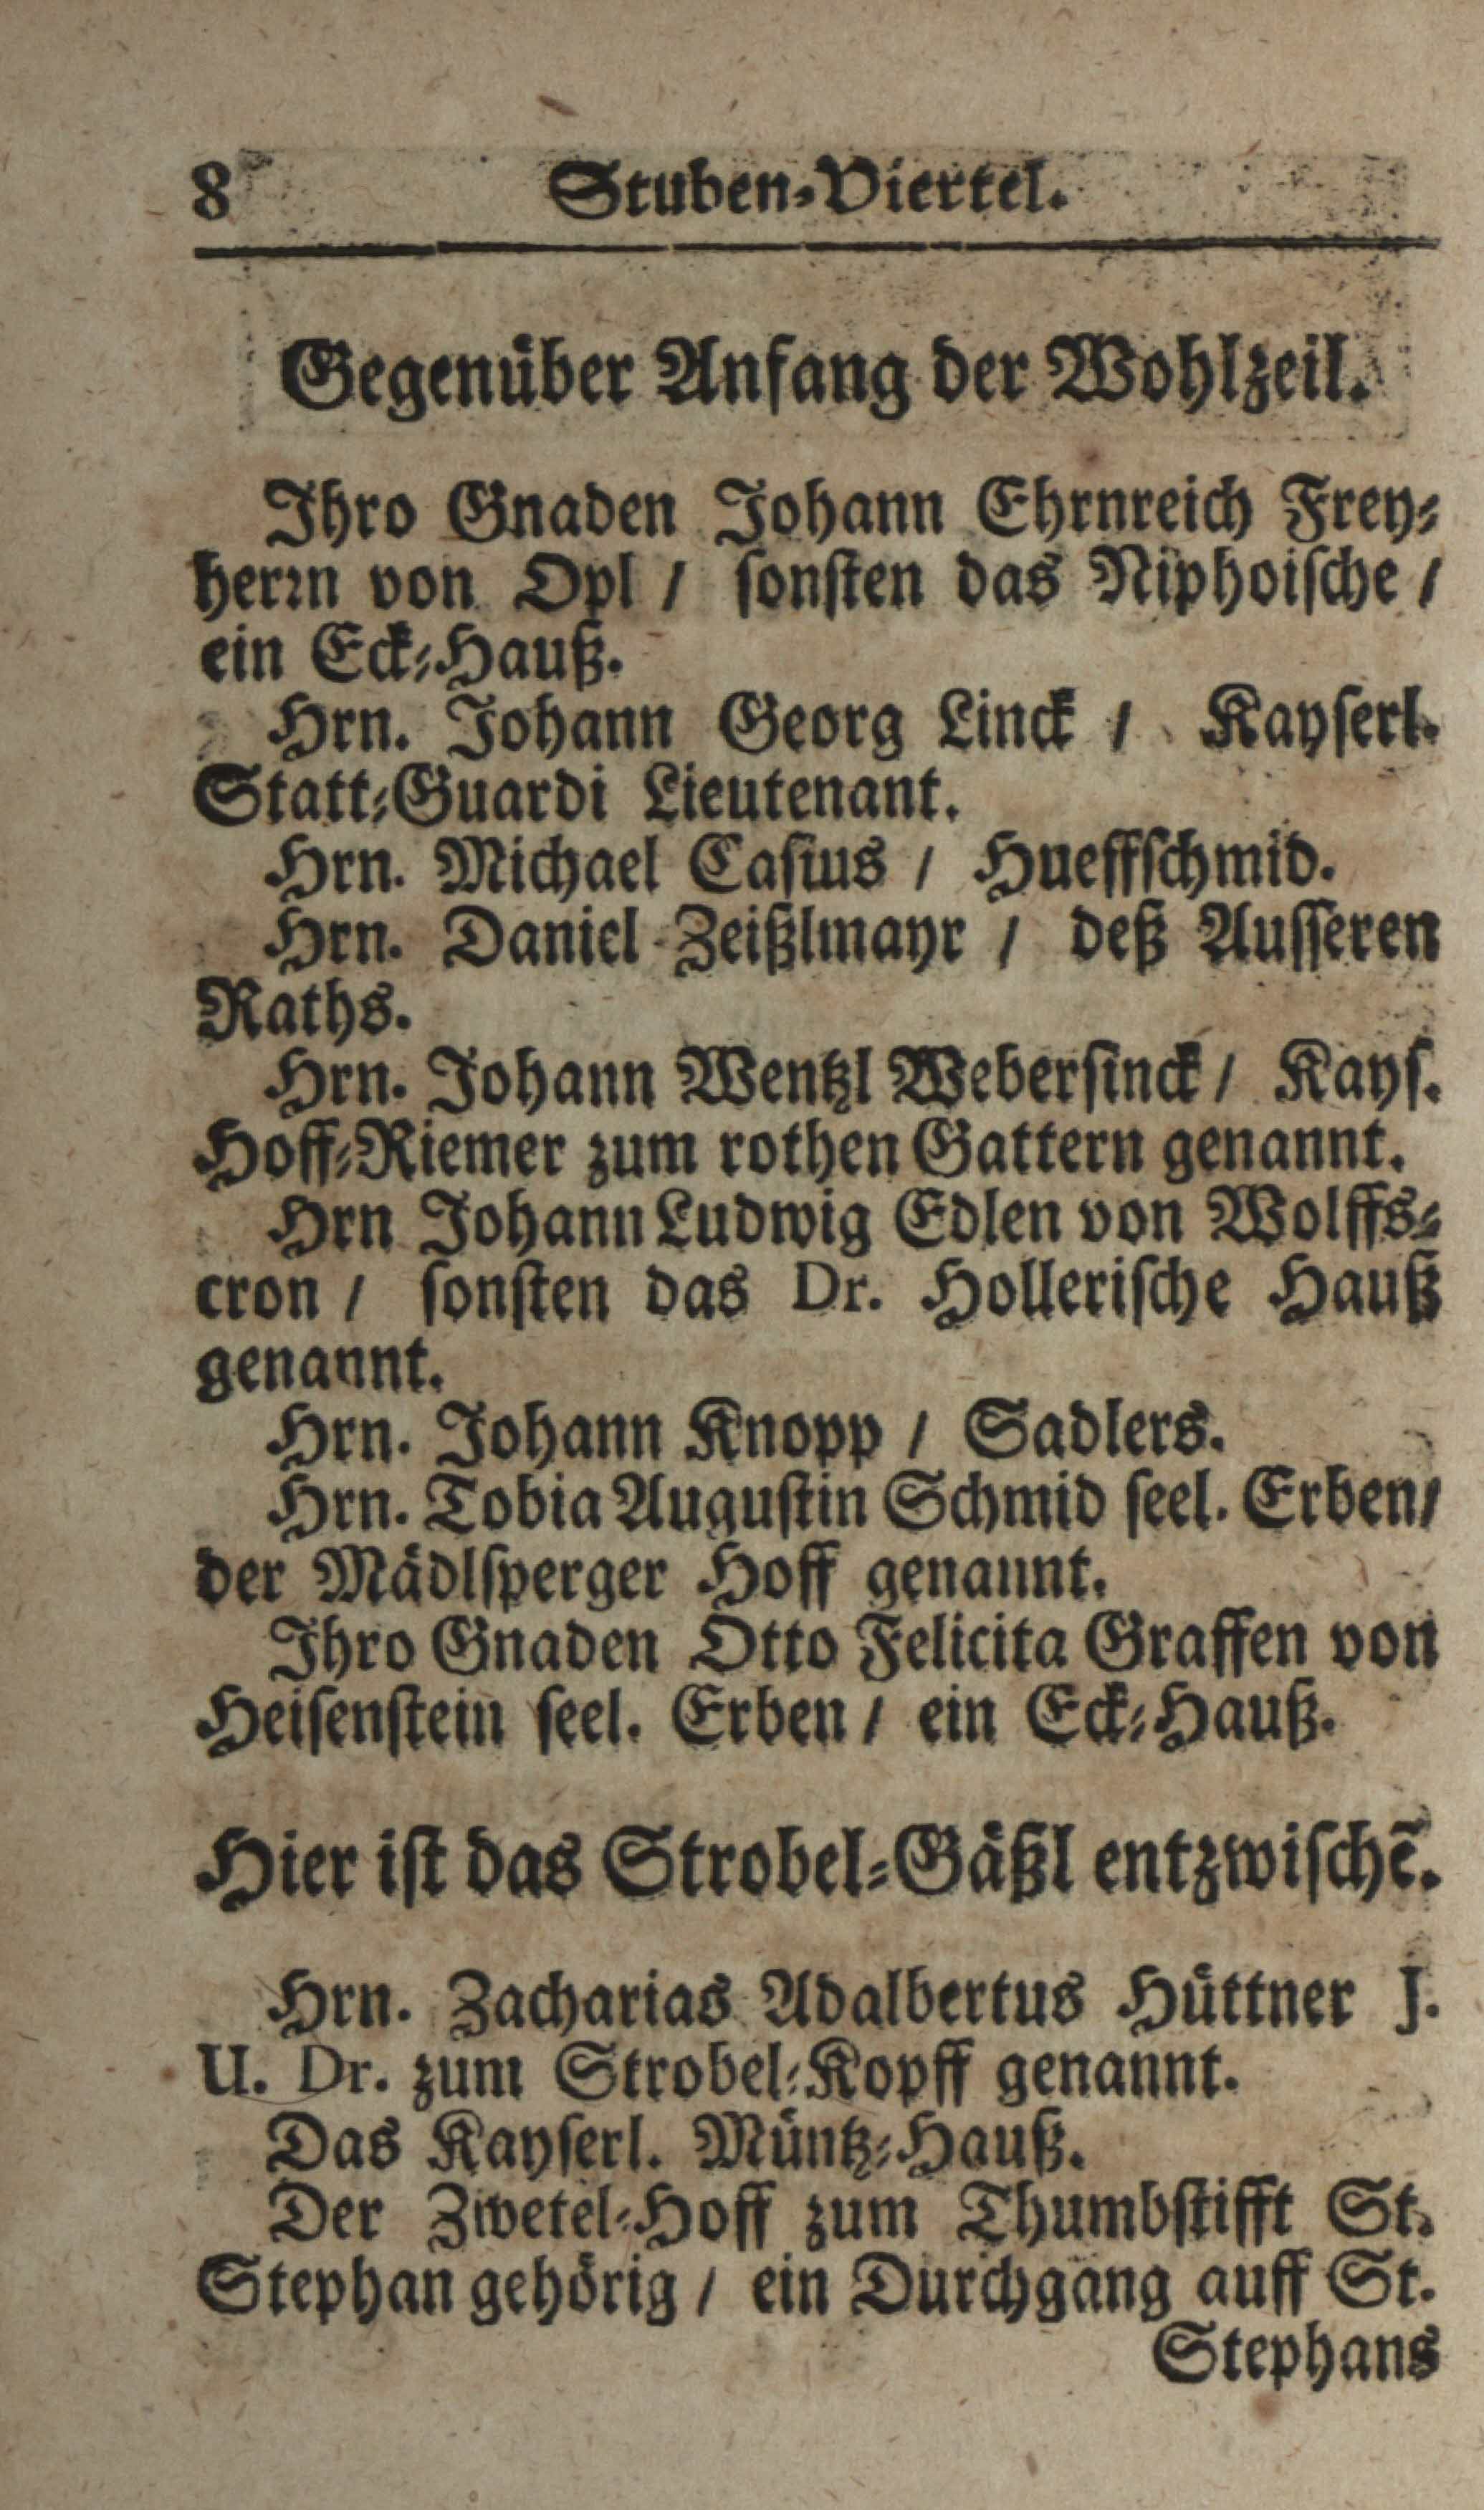 8 Stuben-Viertel.
Gegenüber Anfang der Wohlzeil.
Ihro Gnaden Johann Ehrnreich Frey-
herrn von Opl / sonsten das Niphoische /
ein Eck-Hauß.
Hrn. Johann Georg Linck / Kayserl.
Statt-Guardi Lieutenant.
Hrn. Michael Casius / Hueffschmid.
Hrn. Daniel Zeißlmayr / deß Ausseren
Raths.
Hrn. Johann Wentzl Webersinck / Kays.
Hoff-Riemer zum rothen Gattern genannt.
Hrn Johann Ludwig Edlen von Wolffs-
cron / sonsten das Dr. Hollerische Hauß
genannt.
Hrn. Johann Knopp / Sadlers.
Hrn. Tobia Augustin Schmid seel. Erben /
der Mädlsperger Hoff genannt.
Ihro Gnaden Otto Felicita Graffen von
Heisenstein seel. Erben / ein Eck-Hauß.
Hier ist das Strobel-Gäßl entzwischē.
Hrn. Zacharias Adalbertus Hüttner J.
U. Dr. zum Strobel-Kopff genannt.
Das Kayserl. Müntz-Hauß.
Der Zwetel-Hoff zum Thumbstifft St.
Stephan gehörig / ein Durchgang auff St.
Stephans